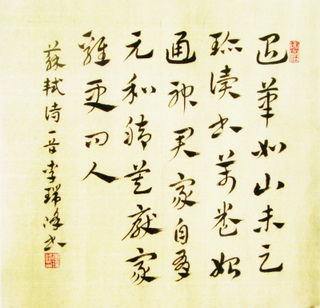 退筆如山未足
珍讀书萬卷始
通神君家自有
元和脚莫厭家
雞更问人
蘇軾诗一首李瑞书